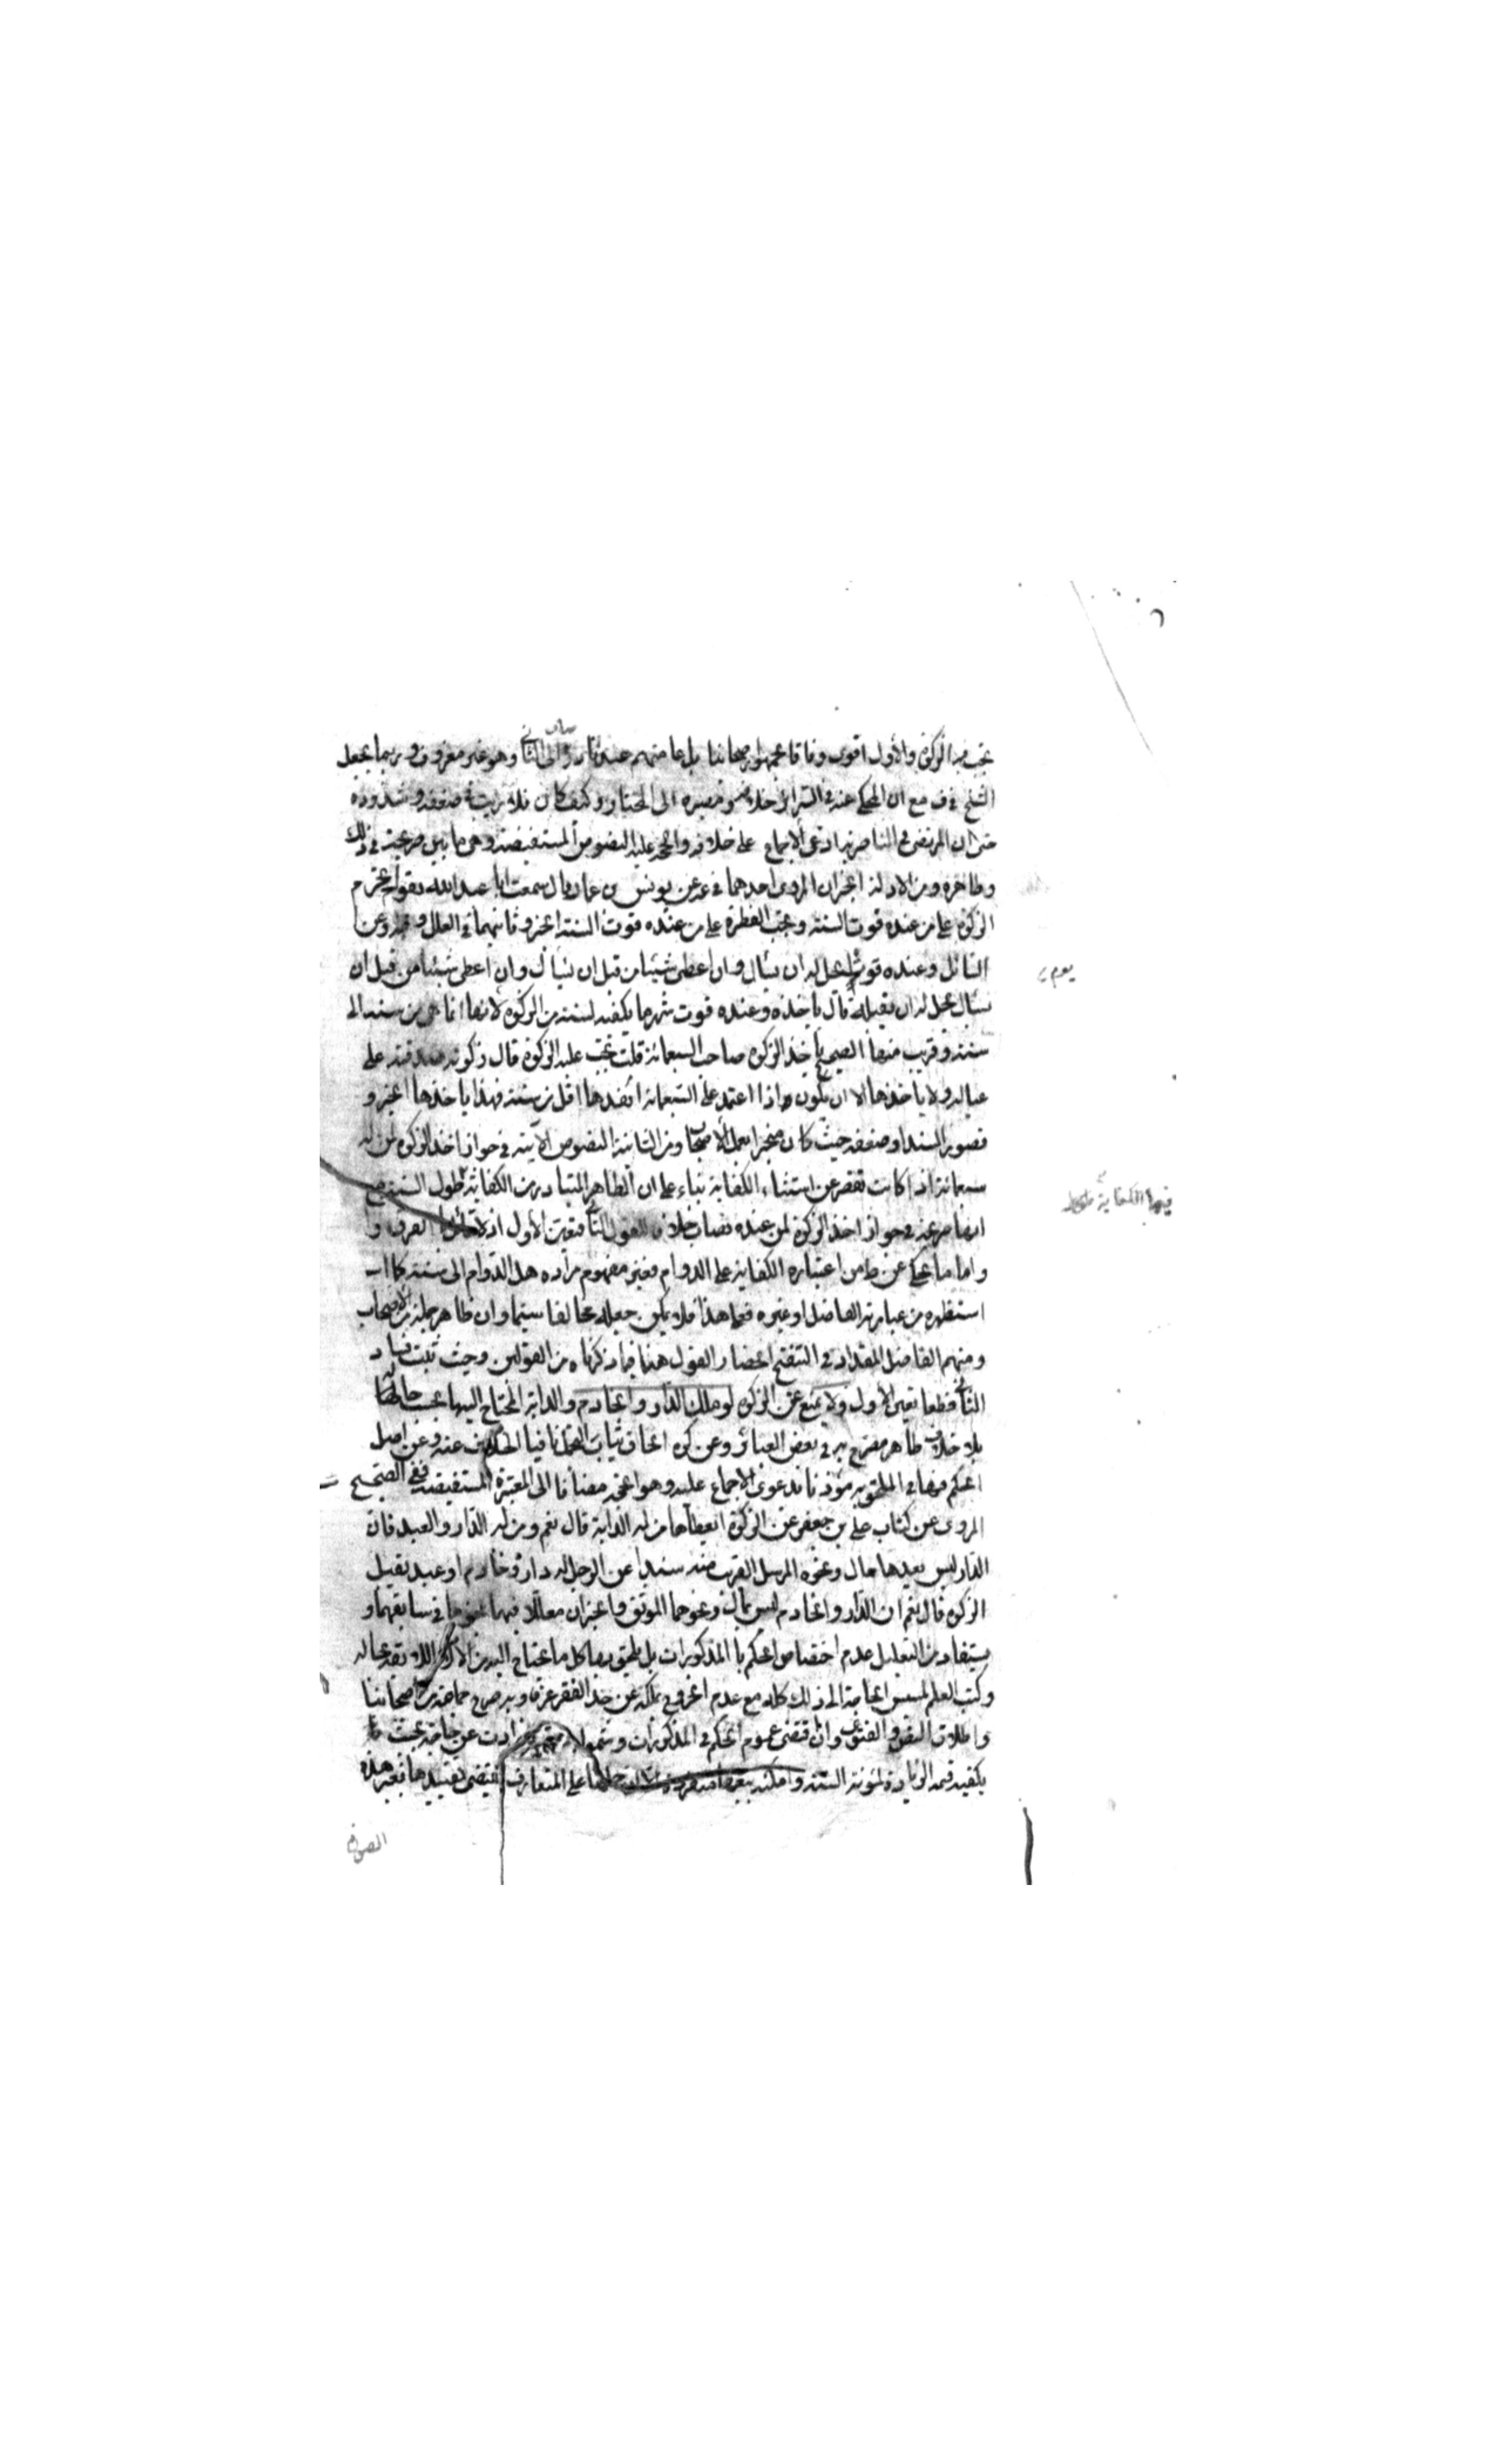 تجب فيه الزكوة والأول اقوى وفاقا لجمهور اصحابنا بل عامتهم عدا نادر والى الثاني وهو غير معروف وربما يجعل
الشيخ في ف مع ان المحكى عنه في السرائر خلافه ومصيره الى المختار وكيف كان فلا ريب في ضعفه وشذوذه
حتى ان المرتضى في الناصرية ادعى الاجماع على خلافه والحجة عليه النصوص المستفيضة وهى ما بين صريحة في ذلك
وظاهرة ومن الاولة الخبران المروى احدهما في عن يونس بن عمار قال سمعت ابا عبد الله يقول تحرم
الزكوة على من عنده قوت السنة وتجب الفطرة على من عنده قوت السنة الخبر وثانيهما في العلل وفيه وعن
السائل وعنده قوت يوم ايحل له ان يسأل وان اعطى شيئا من قبل ان يسأل وان اعطى شيئا من قبل ان
يسأل يحل له ان يقبله قال يأخذه وعنده قوت شهر ما يكفيه لسنته من الزكوة لانها انما هى من سنة الى
سنة وقريب منها الصحيح يأخذ الزكوة صاحب السبعمائة قلت تجب عليه الزكوة قال زكوته صدقة على
عياله ولا يأخذها الا ان يكون اذا اعتمد على السبعمائة انفدها اقل من سنة فهذا يأخذها الخبر و
قصور السند او ضعفه حيث كان منجبر بعمل الاصحاب ومن الثانية النصوص الآتية في جواز اخذ الزكوة لمن له
سبعمائة اذا كانت تقصر عن استثناء الكفاية بناء على ان الظاهر المتبادر من الكفاية فيها الكفاية طول السنة مع
انها صريحة في جواز اخذ الزكوة لمن عنده نصاب خلاف القول الثاني فتعين الأول اذ لا قائل بالفرق و
واما ما يحكى عن ط من اعتباره الكفاية على الدوام فغير مفهوم مراده هل الدوام الى سنة كما
استظهره من عبارته الفاضل او غيره فعلى هذا فلا يمكن جعله مخالفا سيما وان ظاهر جملة من الاصحاب
ومنهم الفاضل المقداد في التنقيح انحصار القول هنا فيما ذكرناه من القولين وحيث ثبت فساد
الثاني قطعا تعين الأول ولا يمنع عن الزكوة لو ملك الدار والخادم والدابة المحتاج اليها بحسب حاله
بلا خلاف ظاهر مصرح به في بعض العبائر وعن كره الحاق ثياب التجمل نافيا الخلاف عنه وعن اصل
الحكم فيها في الملحق به مؤذنا بدعوى الاجماع عليه وهو الحجة مضافا الى المعتبرة المستفيضة ففى الصحيح
المروى عن كتاب على بن جعفر عن الزكوة ايعطاها من له الدابة قال نعم ومن له الدار والعبد فان
الدار ليس يعدها مال ونحوه المرسل القريب منه سندا عن الرجل له دار وخادم او عبد يقبل
الزكوة قال نعم ان الدار والخادم ليس بمال ونحوهما الموثق والخبران معللا فيهما في سابقهما و
يستفاد من التعليل عدم اختصاص الحكم بالمذكورات بل يلحق بها كل ما يحتاج اليه من الآلات اللائقة بحاله
وكتب العلم لمسيس الحاجة الى ذلك كله مع عدم الخروج بملكه عن حد الفقر عرفا وبه صرح جماعة من اصحابنا
واطلاق النص والفتوى وان اقتضى عموم الحكم في المذكورات وشموله زادت عن حاجته بحيث
يكفيه قيمة الزيادة لمؤنة السنة وامكنه بيعها منفردة على المتعارف يقتضى تقييدها بغير هذه
الصورة
يوم
فيها الكفاية طول